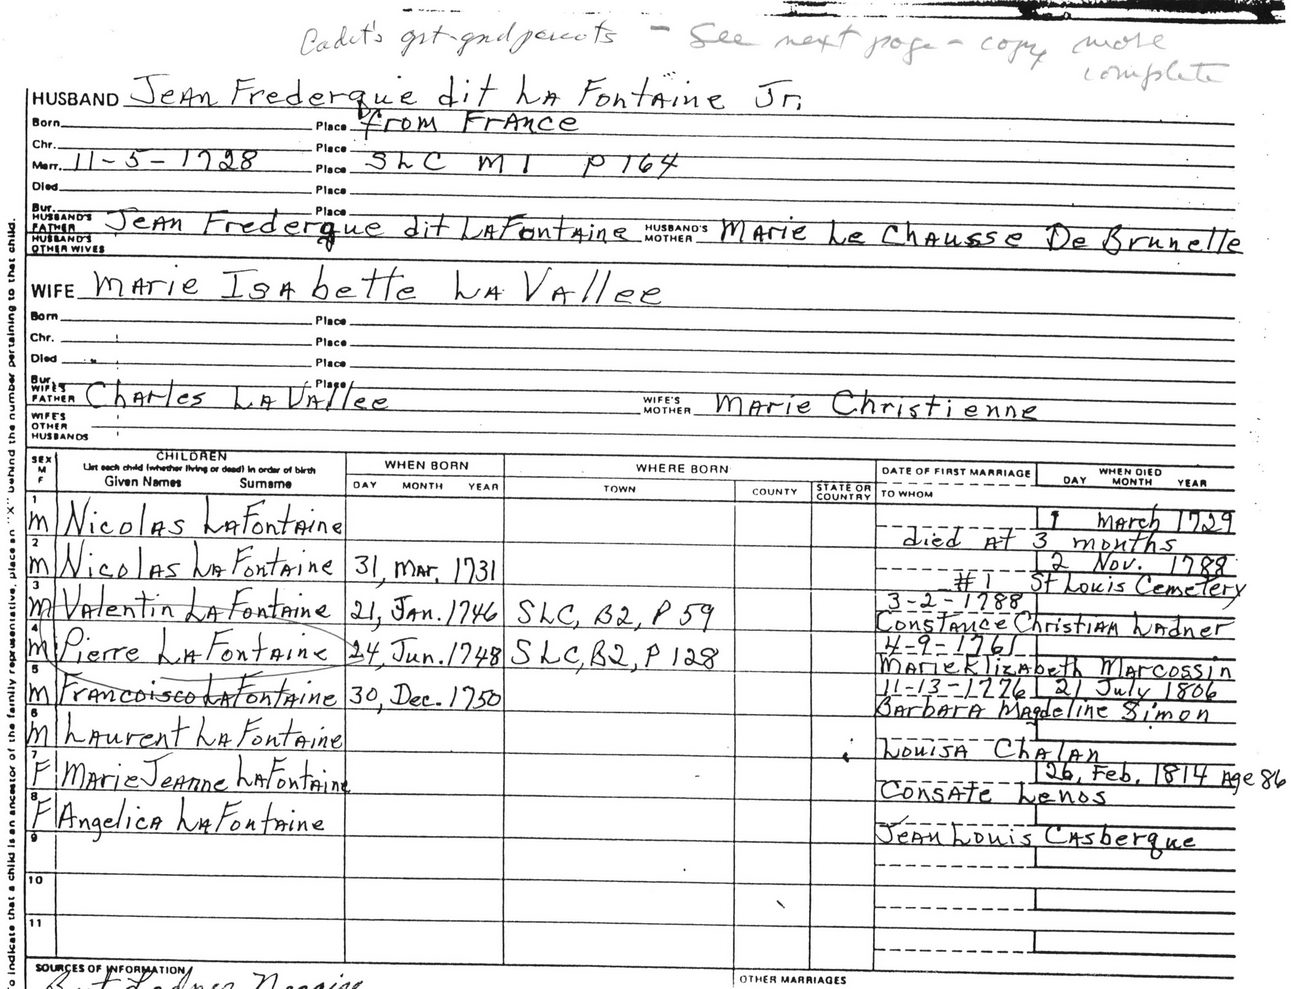 Cadet's grt-gnd parents - See next page - copy more
complete
HUSBAND Jean Frederque dit La Fontaine Jr.
Born Place from France
Chr. Place
Marr. 11-5-1728 Place SLC M1 P164
Died Place
Bur. Place
HUSBAND'S FATHER Jean Frederque dit LaFontaine HUSBAND'S MOTHER Marie Le Chausse De Brunelle
HUSBAND'S OTHER WIVES
WIFE Marie Isabette La Vallee
Born Place
Chr. Place
Died Place
Bur. Place
WIFE'S FATHER Charles La Vallee WIFE'S MOTHER Marie Christienne
WIFE'S OTHER HUSBANDS
SEX M F CHILDREN List each child (whether living or dead) in order of birth Given Names Surname WHEN BORN DAY MONTH YEAR WHERE BORN TOWN COUNTY STATE OR COUNTRY DATE OF FIRST MARRIAGE TO WHOM WHEN DIED DAY MONTH YEAR
1 M Nicolas LaFontaine 1 March 1729
died at 3 months
2 M Nicolas LaFontaine 31, Mar. 1731 2 Nov. 1788
#1 St Louis Cemetery
3 M Valentin LaFontaine 21, Jan. 1746 SLC, B2, P59 3-2-1788
Constance Christiam Ladner
4 M Pierre LaFontaine 24, Jun. 1748 SLC, B2, P128 4-9-1761
Marie Elizabeth Marcossin
5 M Francoisco LaFontaine 30, Dec. 1750 11-13-1776 21 July 1806
Barbara Magdeline Simon
6 M Laurent LaFontaine
Louisa Chalan
7 F Marie Jeanne LaFontaine 26, Feb. 1814 Age 86
Consate Lenos
8 F Angelica LaFontaine
Jean Louis Casberque
9
10
11
SOURCES OF INFORMATION OTHER MARRIAGES
To indicate that a child is an ancestor of the family representative, place an "X" behind the number pertaining to that child.